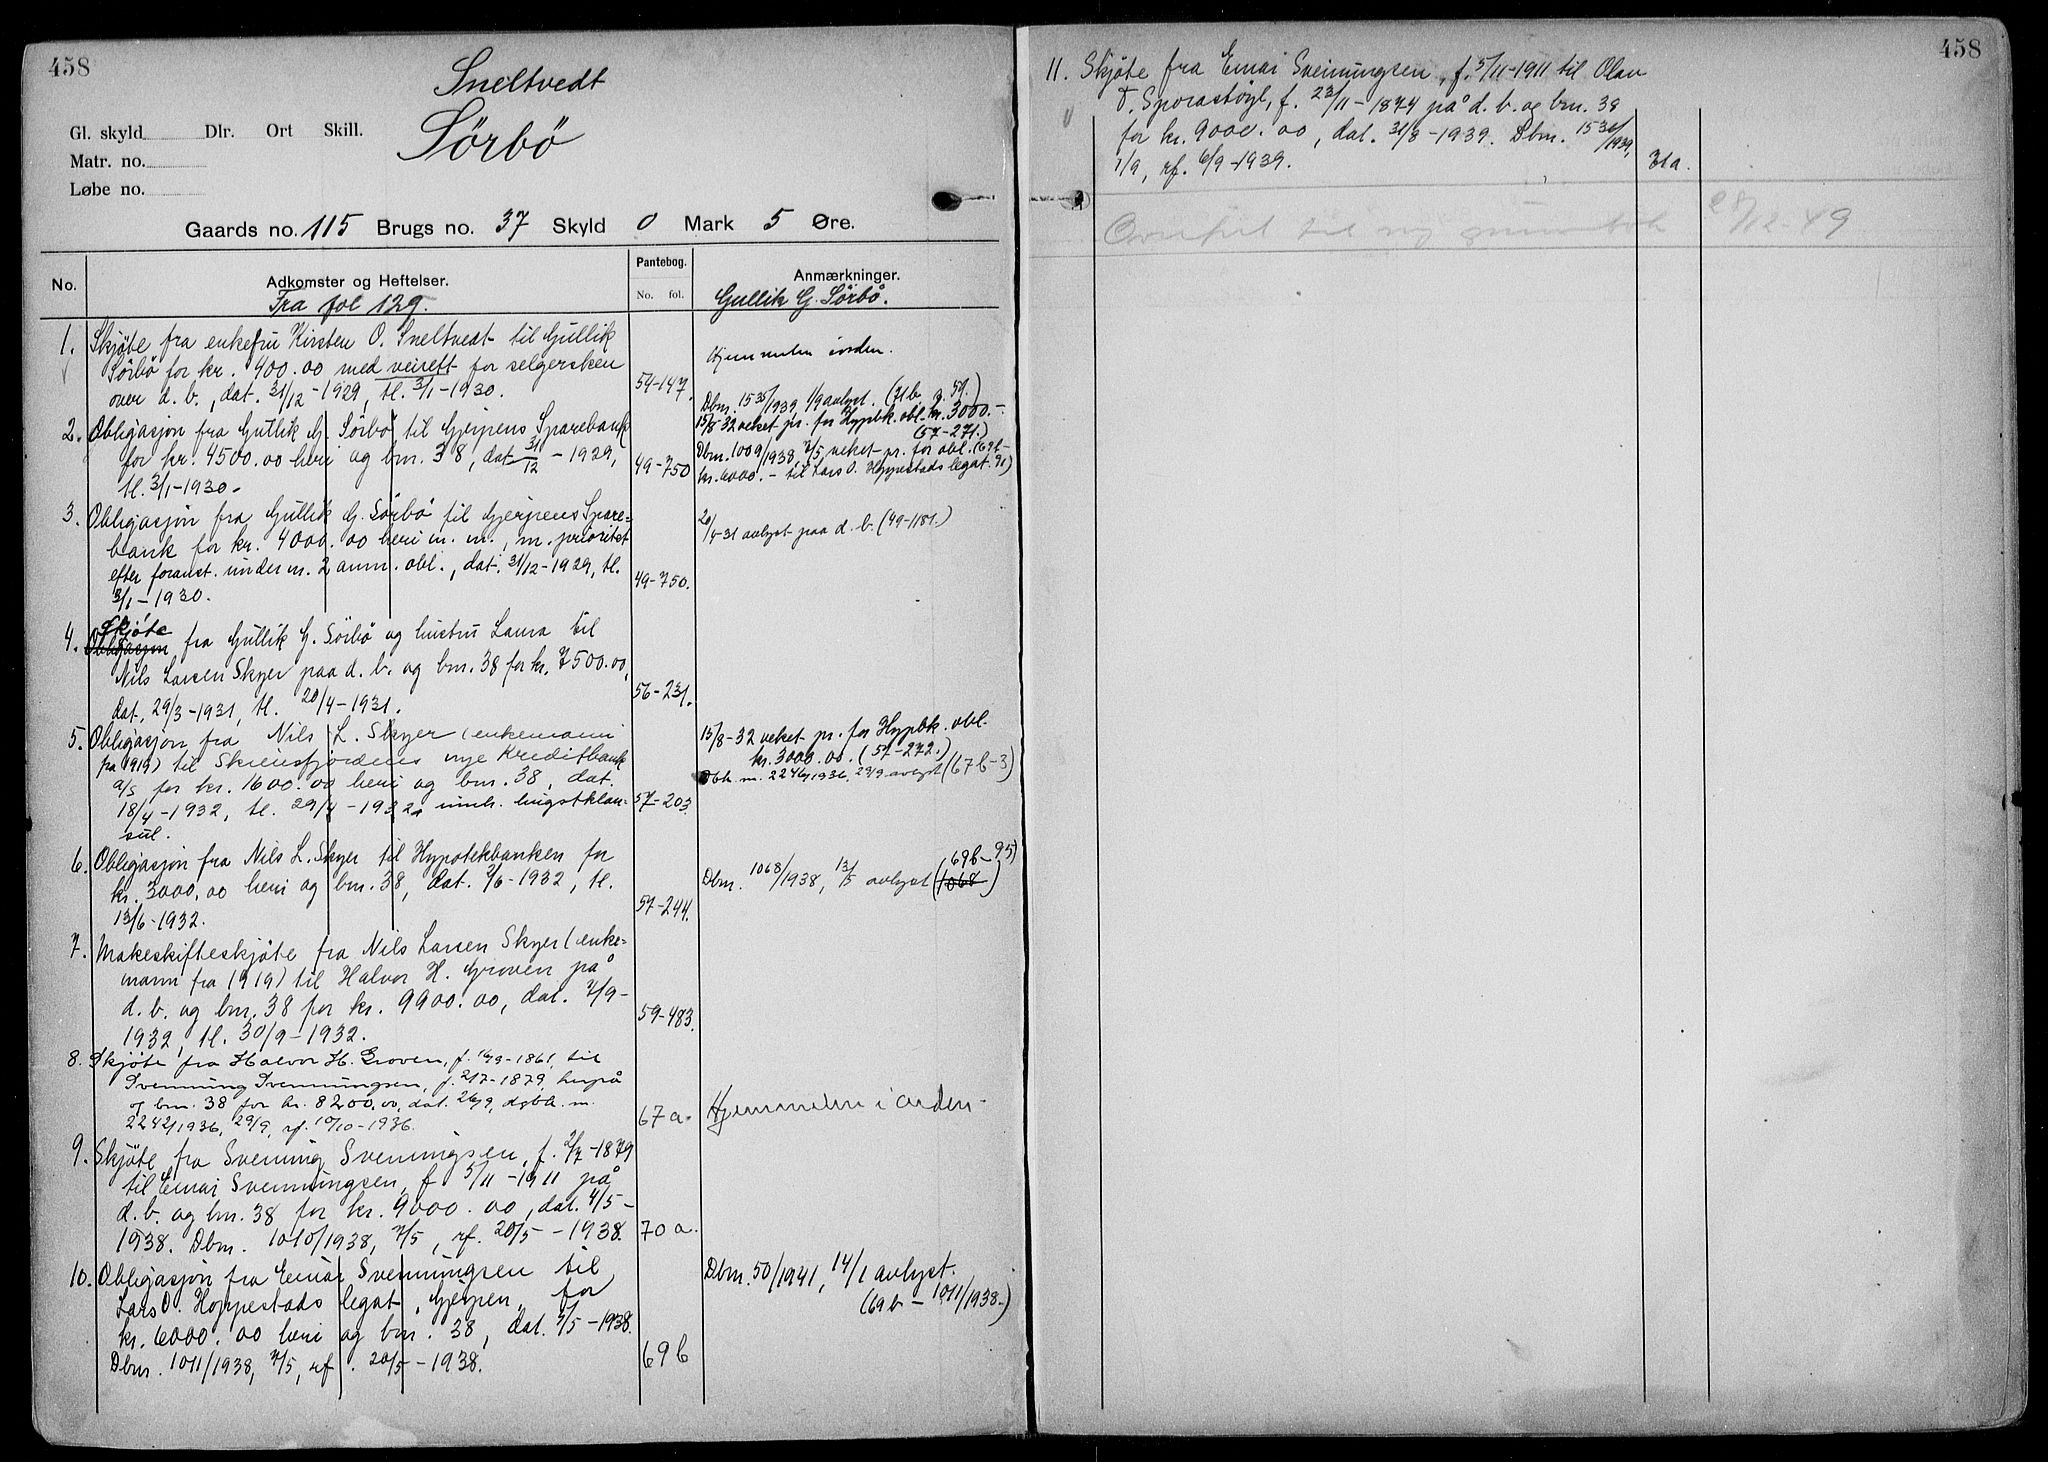 458
Sneltvedt
Sörbö
Gl. skyld Dlr. Ort Skill.
Matr. no.
Løbe no.
Gaards no. 115 Brugs no. 37 Skyld 0 Mark 5 Øre.
No. Adkomster og Heftelser. Pantebog. No. fol. Anmærkninger.
Fra fol 129. Gullik G. Sörbö.
1. Skjøte fra enkefru Kirsten O. Sneltvedt til Gullik
Sörbö for kr. 400.00 med veirett for selgersken
over d. b., dat. 31/12-1929, tl. 3/1-1930. 54-147.
Hjemmelen iorden.
2. Obligasjon fra Gullik G. Sörbö til Gjerpens Sparebank
for kr. 4500.00 heri og bnr. 38, dat. 31/12-1929,
tl. 3/1-1930. 49-750
Dbnr. 1535/1939, 1/9 avlyst. (71b p. 59.)
15/8 32 veket pr. for Hypbk. obl. kr. 3000.-
(57-271.)
Dbnr. 1009/1938 7/5 veket pr. for obl. (69b-
kr. 6000.- til Lars O. Hoppestads legat. 91)
3. Obligasjon fra Gullik G. Sörbö til Gjerpens Spare-
bank for kr. 4000.00 heri m. m., m. prioritet
efter foranst. under nr. 2 anm. obl., dat. 31/12-1929, tl.
3/1-1930. 49-750.
20/4-31 avlyst paa d. b. (49-1181.)
4. Obligasjon Skjöte fra Gullik G. Sörbö og hustru Laura til
Nils Larsen Skyer paa d. b. og bnr. 38 for kr. 7500.00,
dat. 29/3-1931, tl. 20/4-1931. 56-231.
5. Obligasjon fra Nils L. Skyer (enkemann
fra 1919) til Skiensfjordens nye Kreditbank
a/s for kr. 1600.00 heri og bnr. 38, dat.
18/4-1932, tl. 29/4-1932, innh. hugstklau-
sul. 57-203.
15/8-32 veket pr. for Hypbk. obl.
kr. 3000.00. (57-272.)
Dbk. nr. 2246/1936, 29/9 avlyst (67b-3)
6. Obligasjon fra Nils L. Skyer til Hypotekbanken for
kr. 3000.00 heri og bnr. 38, dat. 2/6-1932, tl.
13/6-1932. 57-244.
69b-95)
Dbnr. 1068/1938, 13/5 avlyst (1068)
7. Makeskifteskjöte fra Nils Larsen Skyer (enke-
mann fra 1919) til Halvor H. Groven på
d. b. og bnr. 38 for kr. 9900.00, dat. 7/9-
1932, tl. 30/9-1932. 59-483.
8. Skjöte fra Halvor H. Groven, f. 16/9-1861, til
Svenning Svenningsen, f. 2/7-1879, herpå
og bnr. 38 for kr. 8200.00, dat. 26/9, dgbk. nr.
2242/1936, 29/9, rf. 10/10-1936. 67a.
Hjemmelen i orden.
9. Skjöte fra Svenning Svenningsen, f. 2/7-1879
til Einar Svenningsen, f 5/11-1911 på
d. b. og bnr. 38 for kr. 9000.00, dat. 4/5-
1938. Dbnr. 1010/1938, 7/5, rf. 20/5-1938. 70a.
10. Obligasjon fra Einar Svenningsen til
Lars O. Hoppestads legat, Gjerpen, for
kr. 6000.00 heri og bnr. 38, dat. 7/5-1938.
Dbnr. 1011/1938, 7/5, rf. 20/5-1938. 69b
Dbnr. 50/1941, 14/1 avlyst.
(69b-1011/1938.)
458
11. Skjöte fra Einar Sveinungsen, f. 5/11-1911 til Olav
T. Sporastöyl, f. 23/11-1874 på d. b. og bnr. 38
for kr. 9000.00, dat. 31/8-1939. Dbnr. 1536/1939,
1/9, rf. 6/9-1939. 71a.
Overført til ny grunnbok 28/12-49